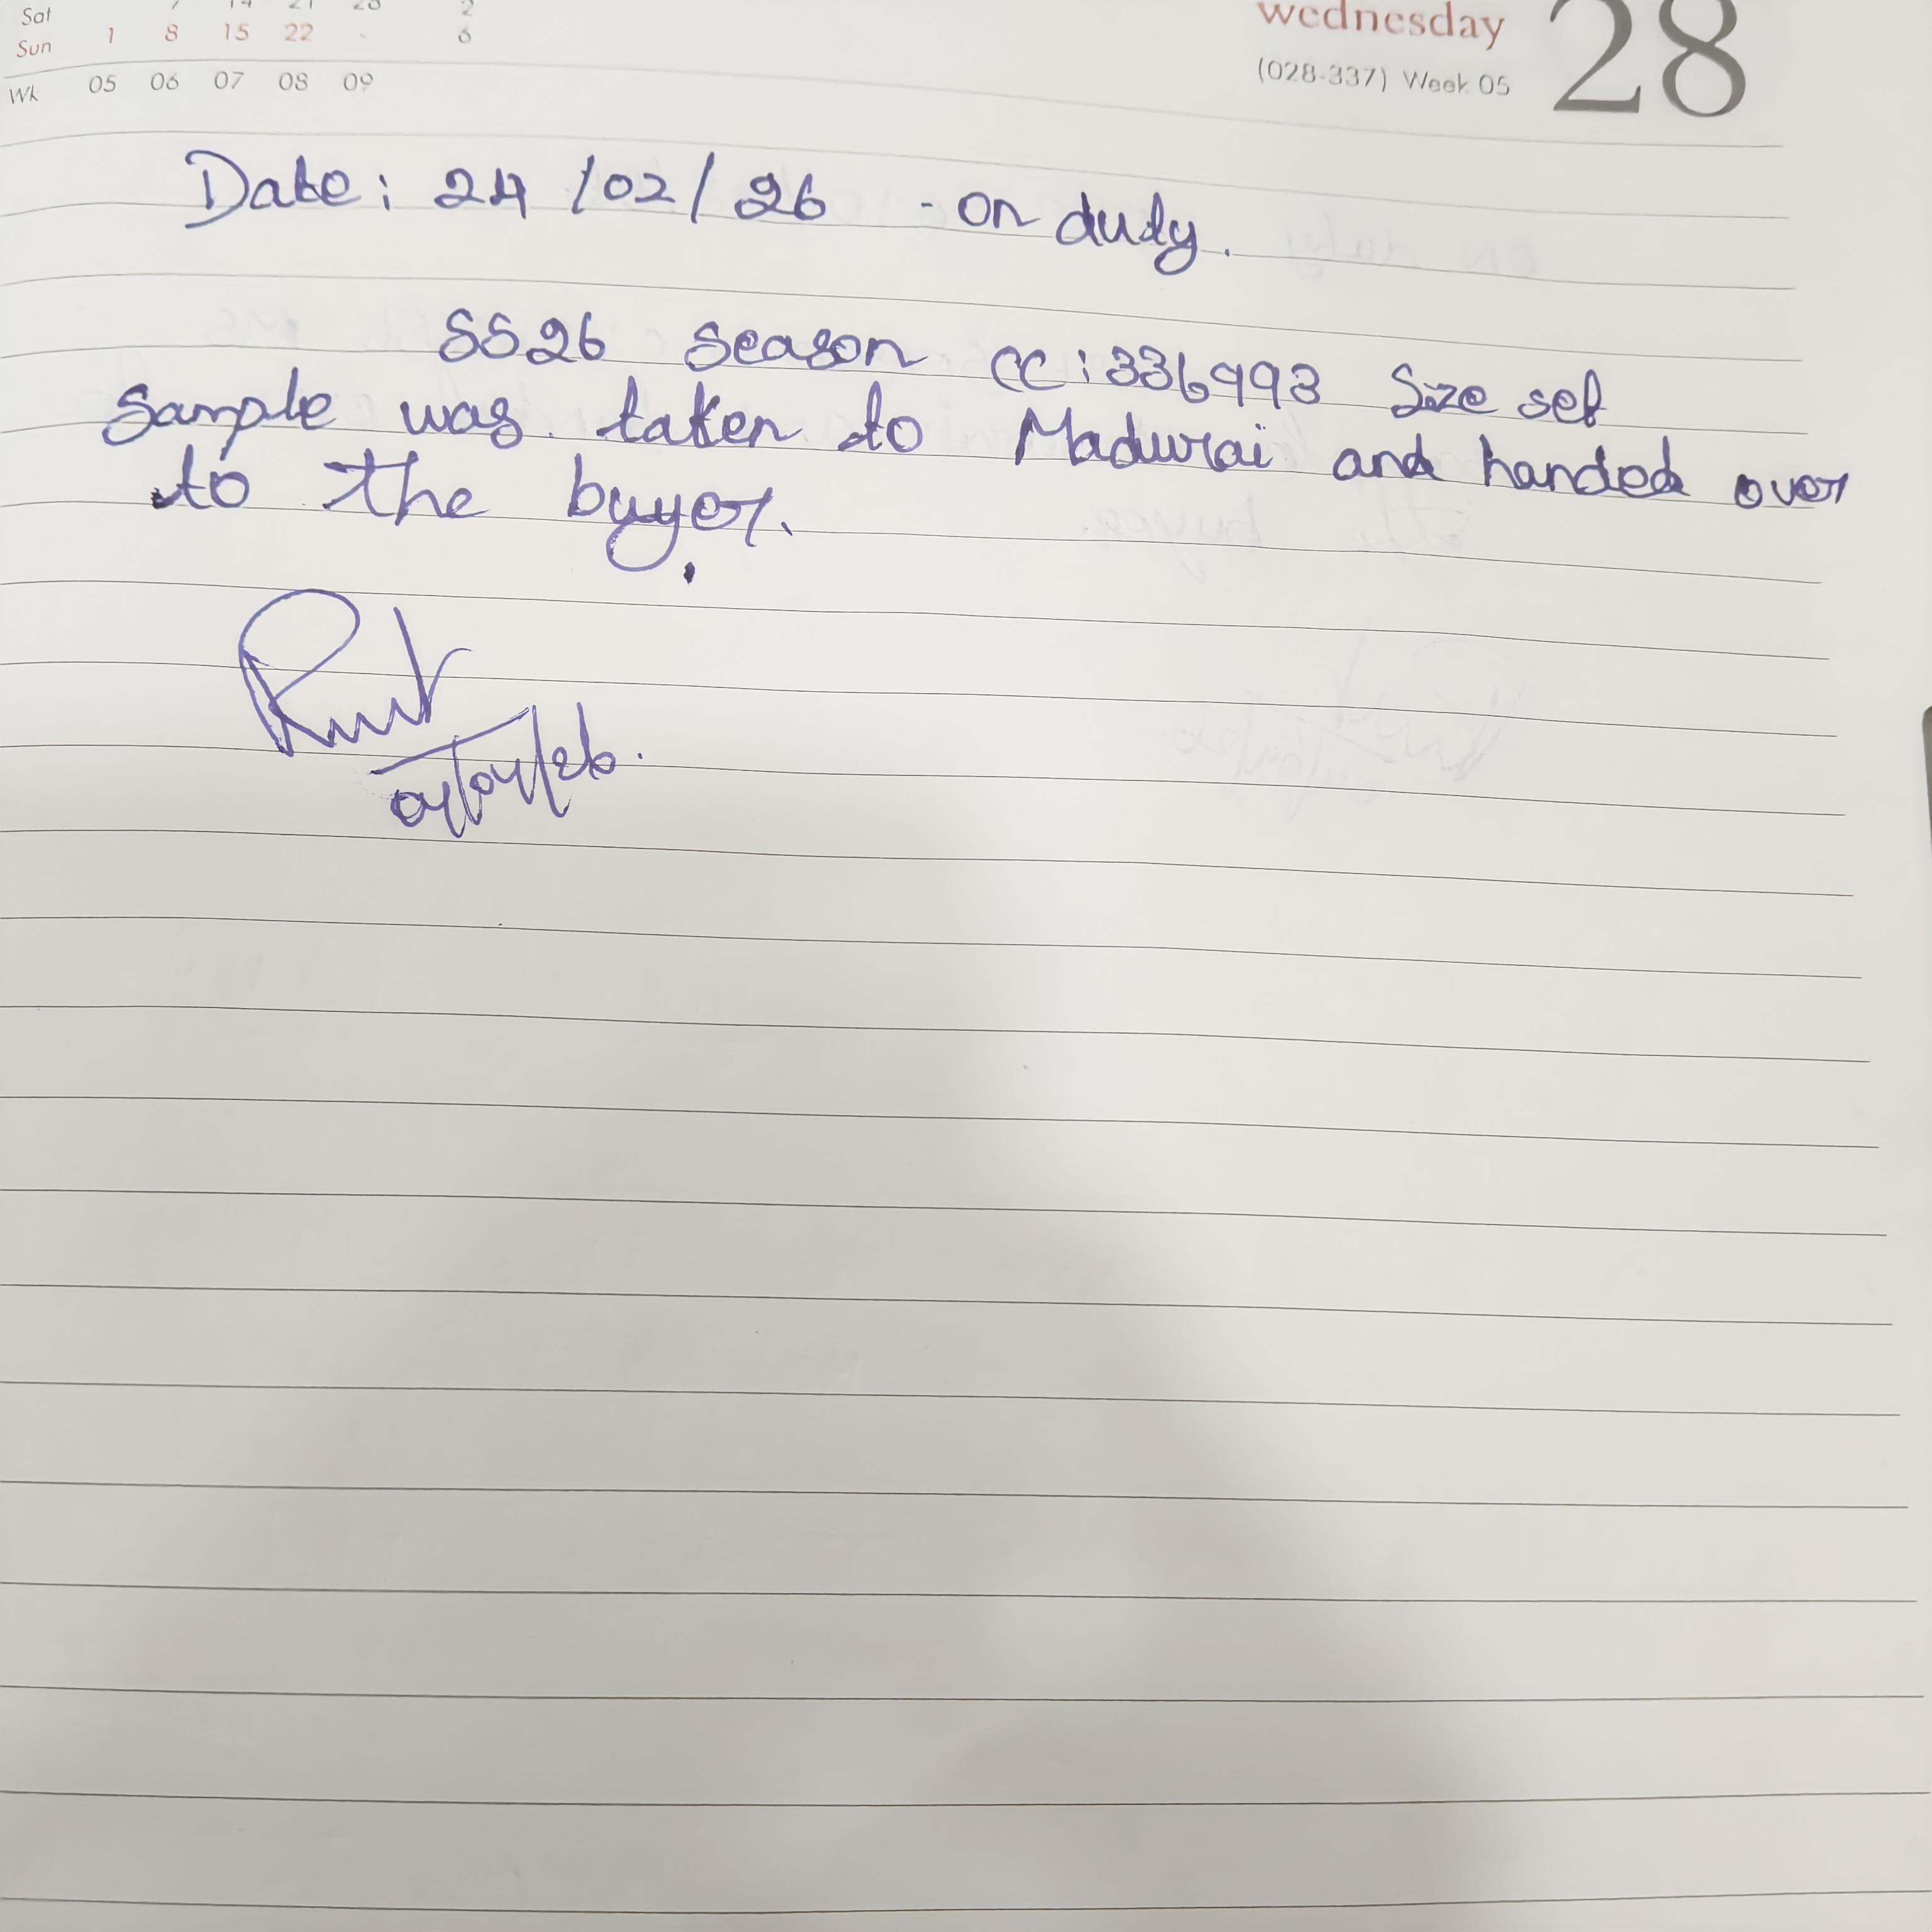 Sat 7 14 21 28
Sun 1 8 15 22
Wk 05 06 07 08 09
wednesday 28
(028-337) Week 05
Date: 24/02/26 - on duty.
SS26 season CC:336993 Size set
sample was taken to Madurai and handed over
to the buyer.
04/04/26.